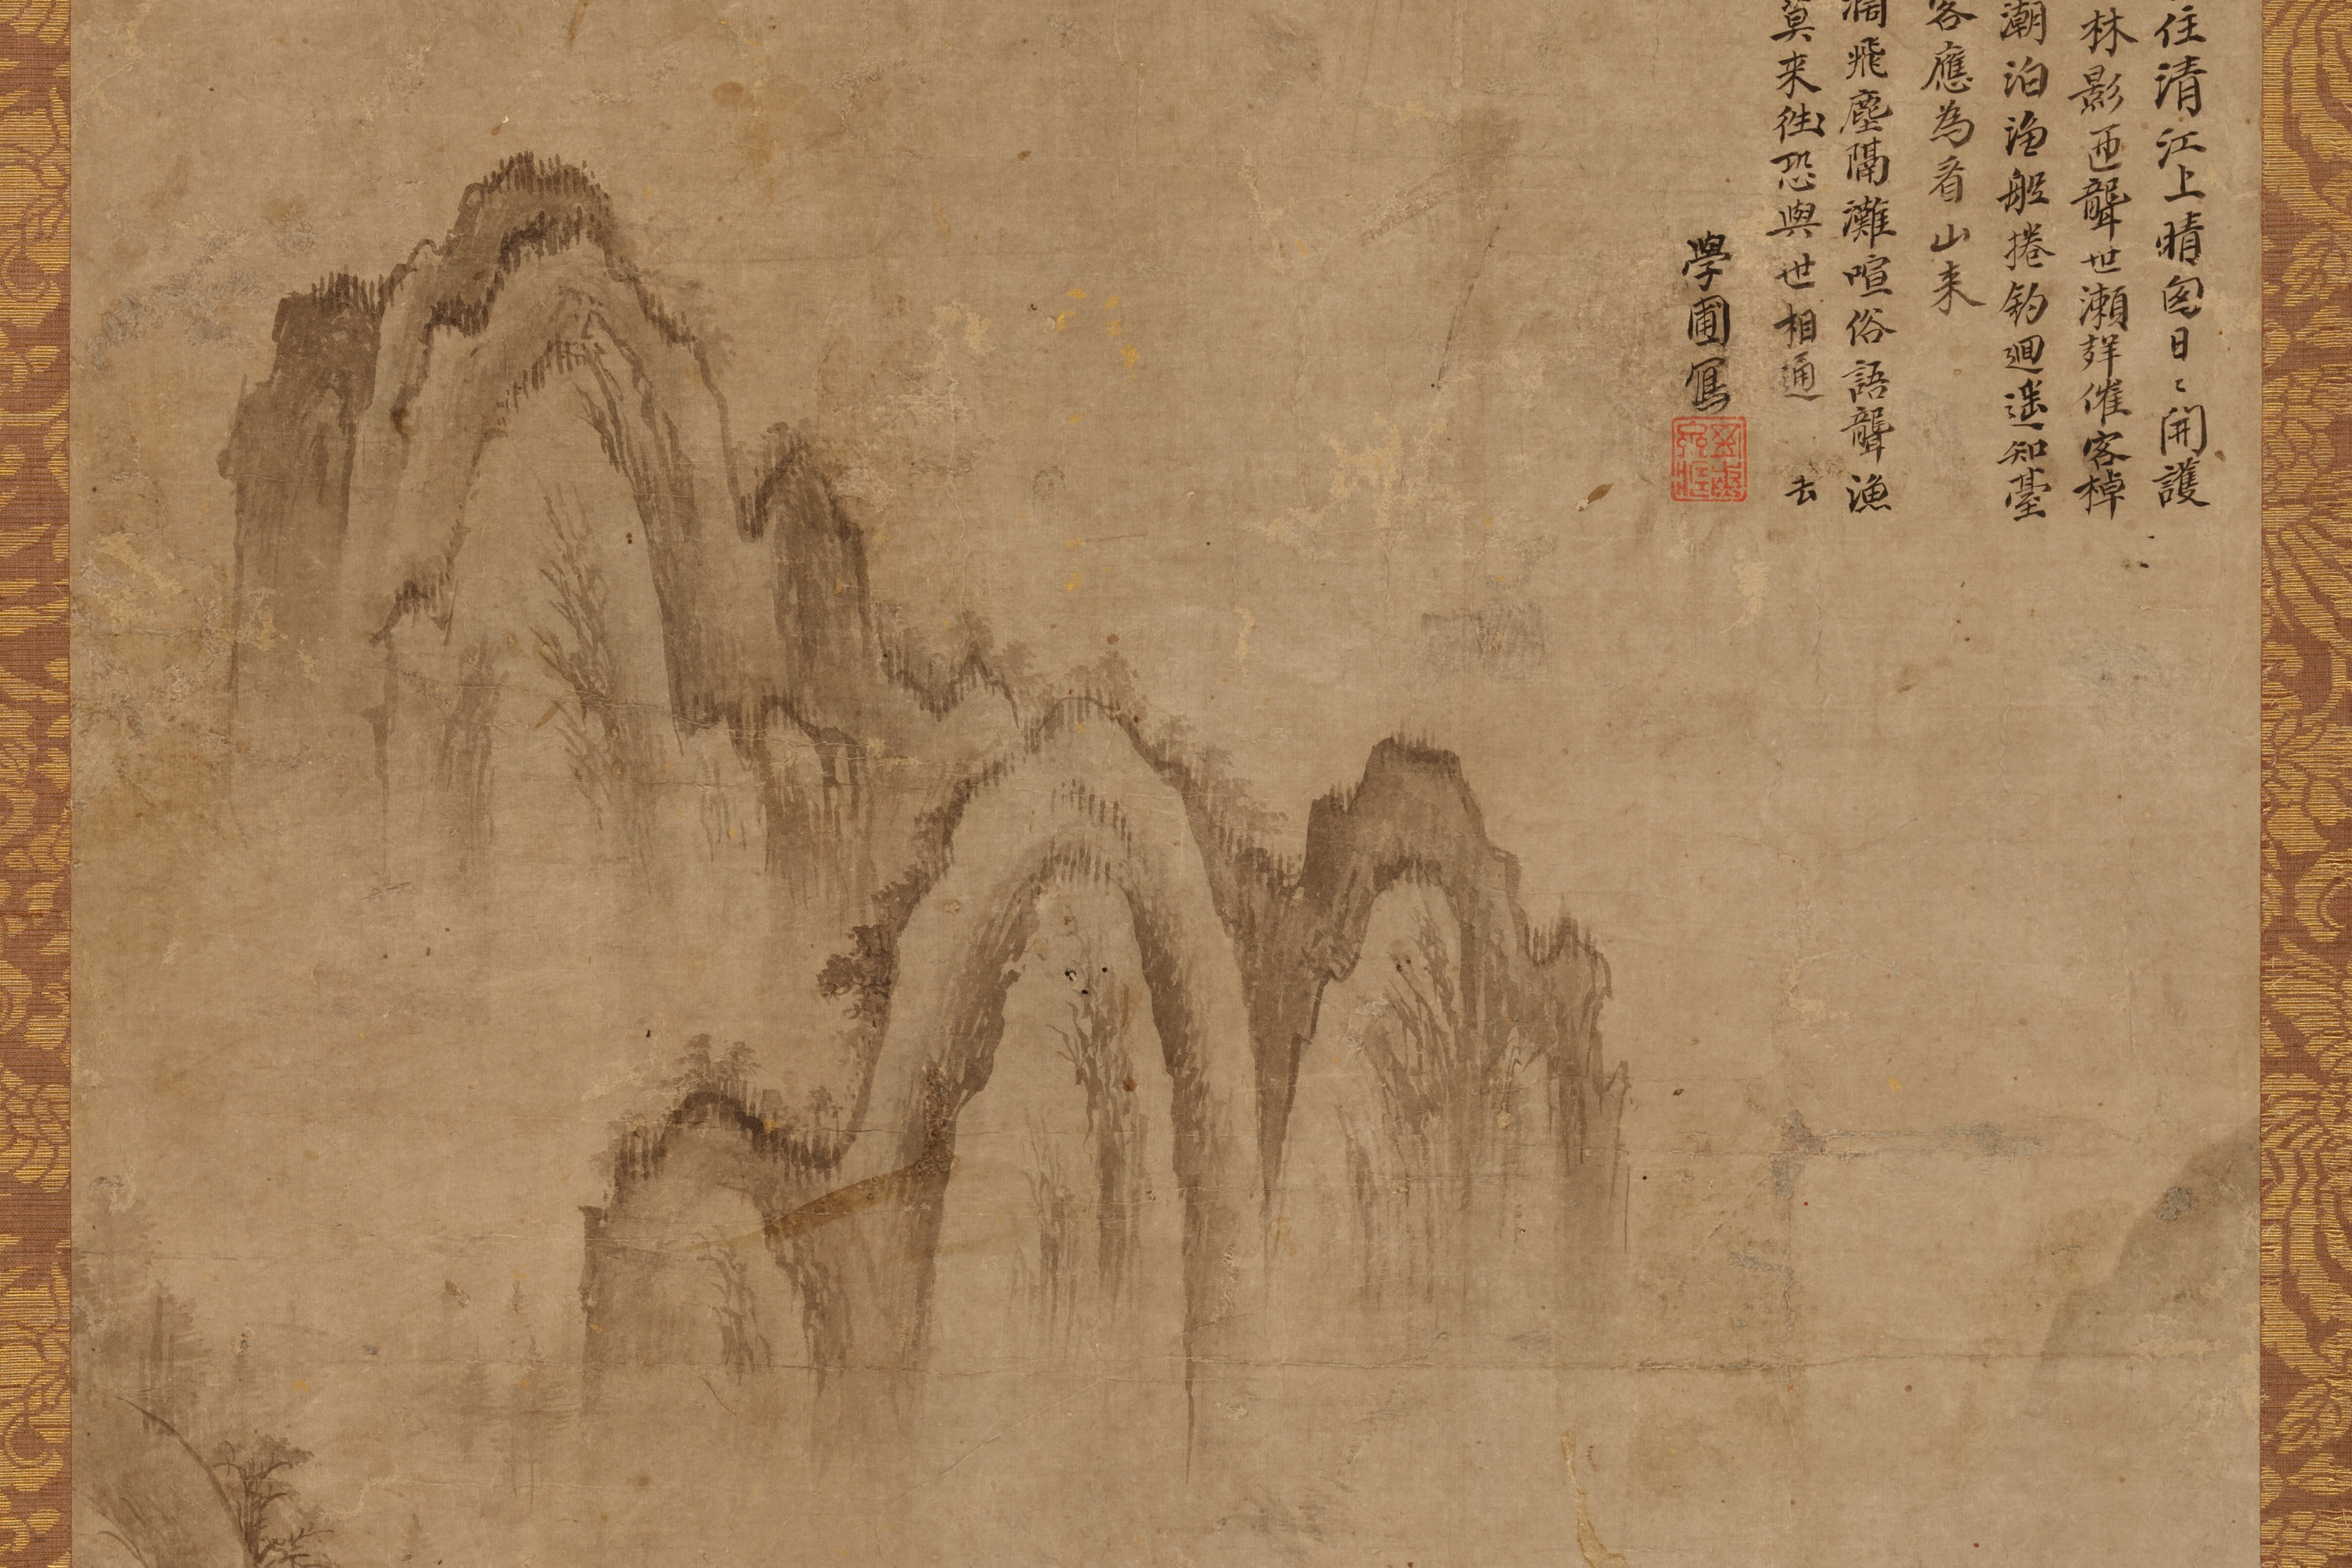 住清江上晴囱日〻開護
林影匝聾世瀬聲催客棹
潮泊漁船捲釣廻遥知臺
客應為看山来
闊飛塵隔灘喧俗語聾漁
莫来徃恐與世相通 去
學圃寫